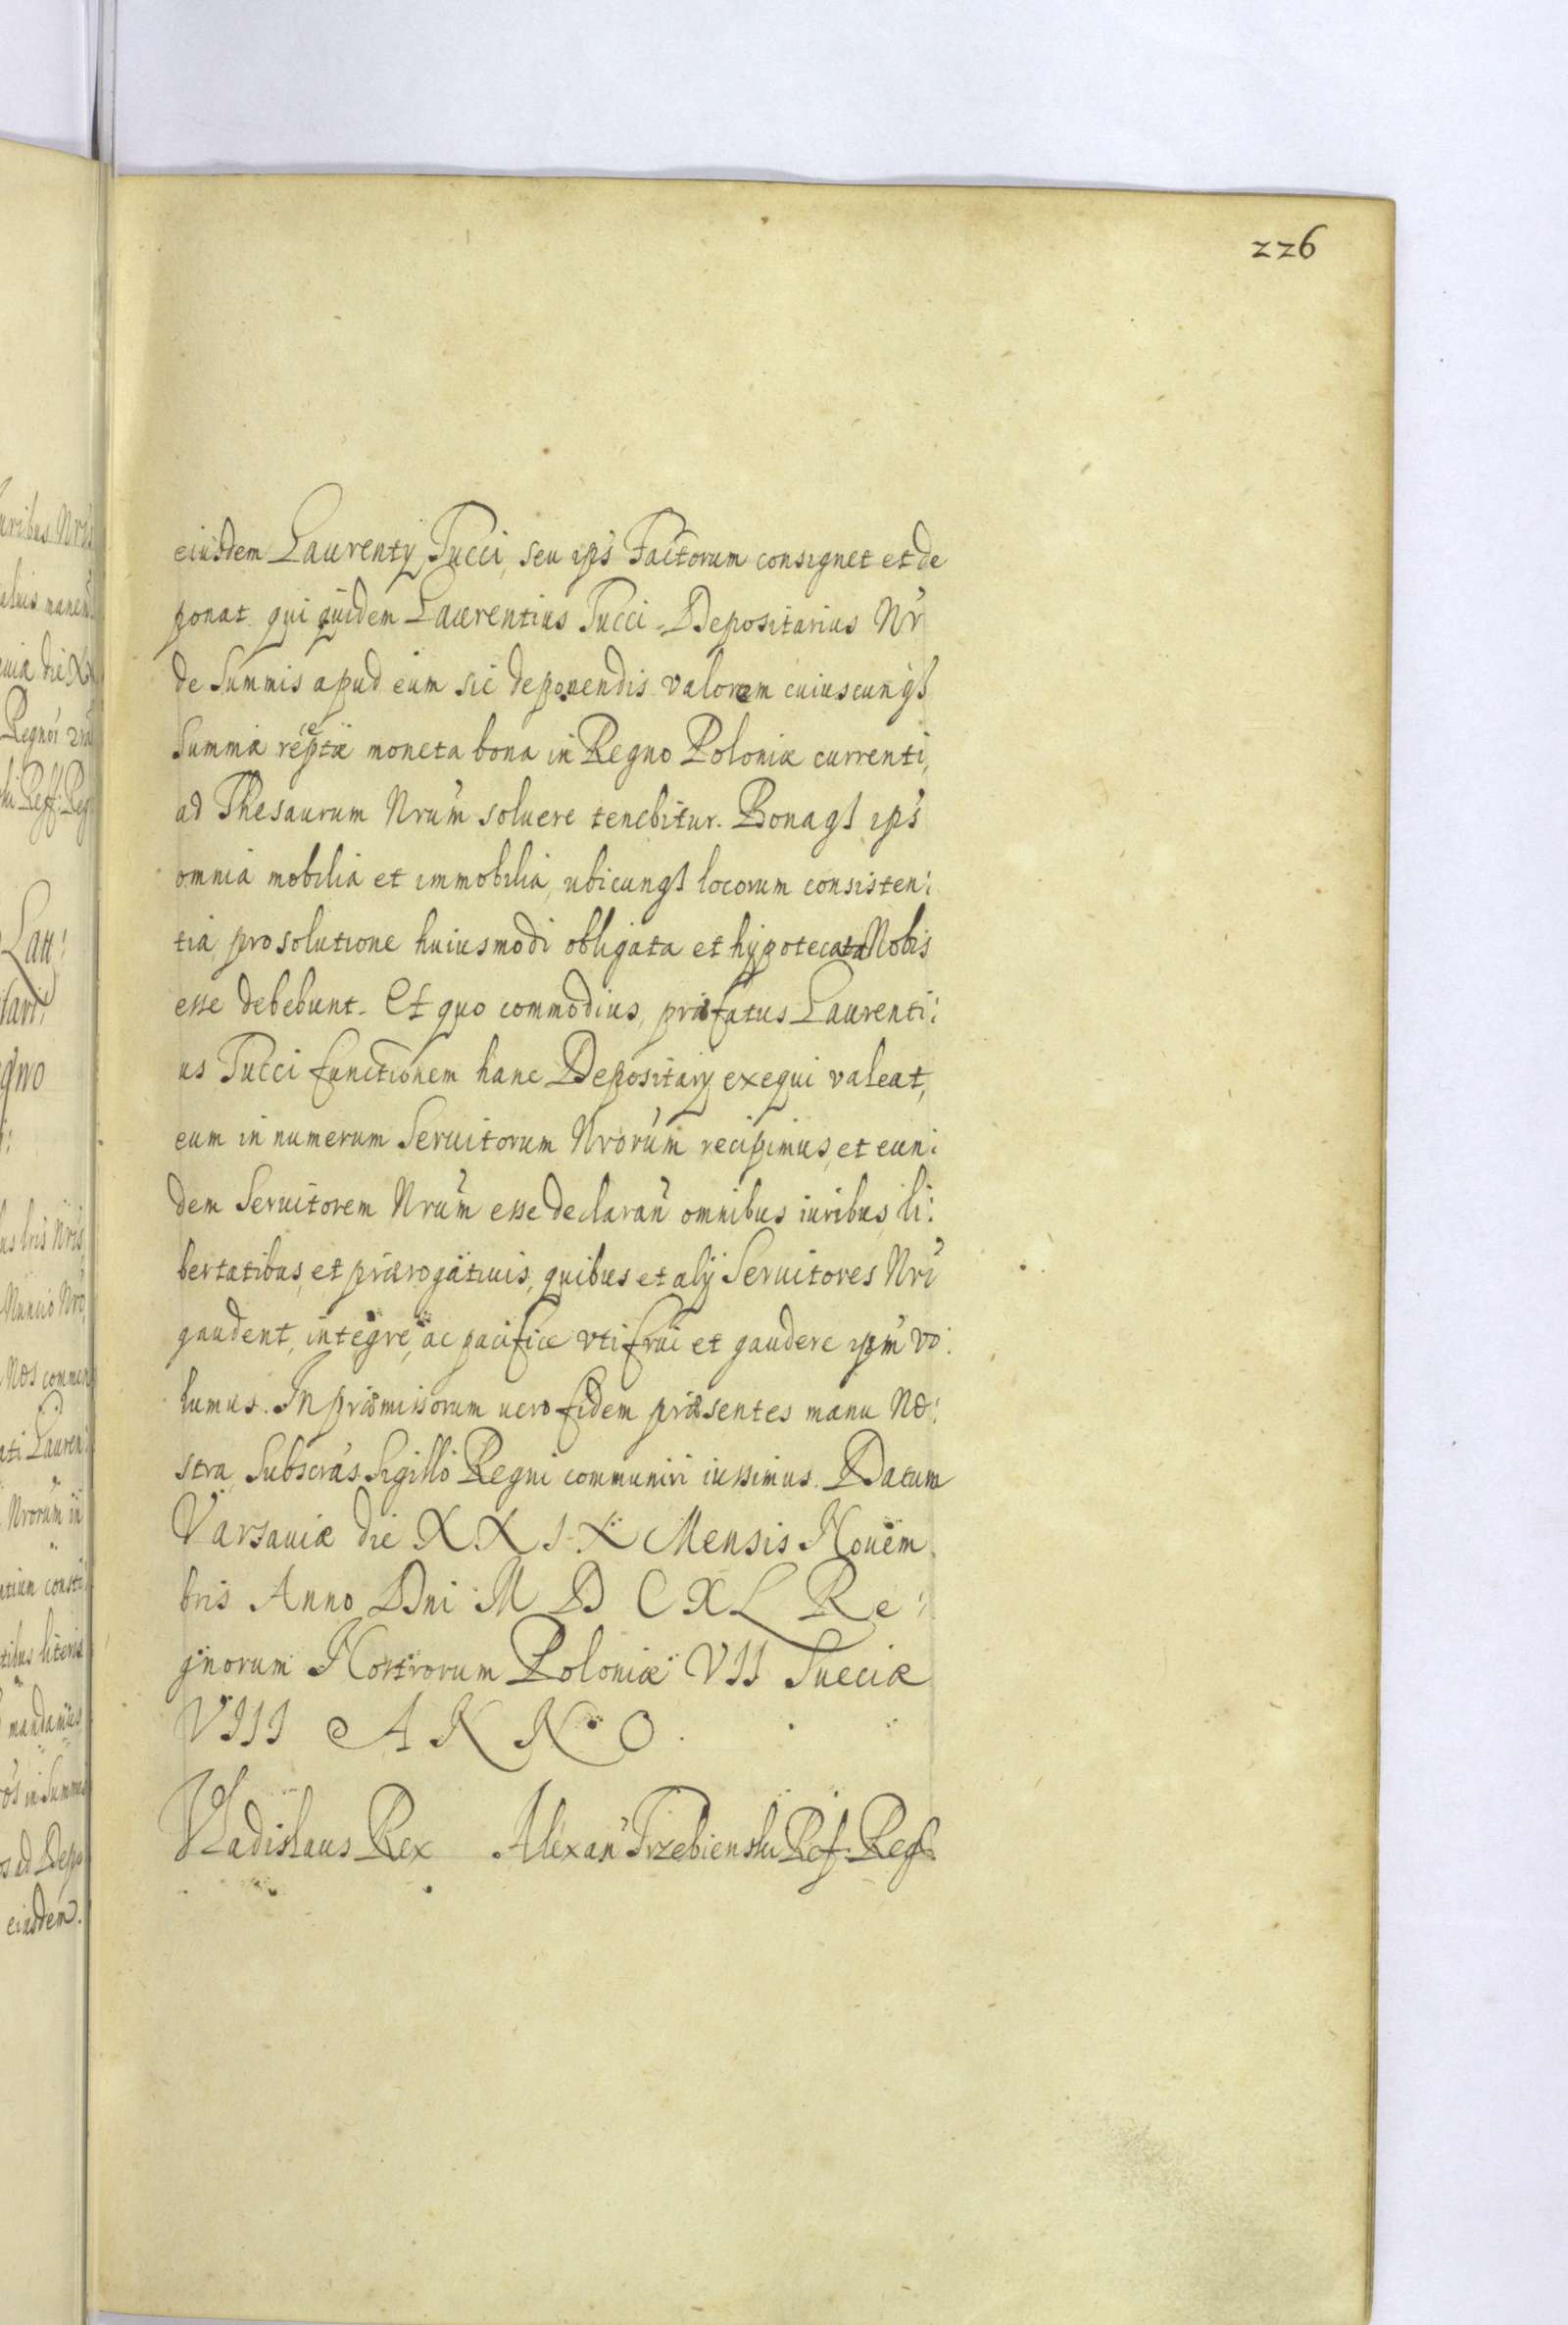 226
eiusdem Laurenty Tucci, seu ips Factorum consignet et de
ponat. qui quidem Laurentius Tucci Depositarius Nr
de Summis apud eum sic deponendis valorem cuiuscunqȝ
Summæ receptæ moneta bona in Regno Poloniæ currenti,
ad Thesaurum Nrum soluere tenebitur. Bonaqȝ ips
omnia mobilia et immobilia, ubicunqȝ locorum consisten:
tia, pro solutione huiusmodi obligata et hypotecata Nobis
esse debebunt. Et quo commodius, præfatus Laurenti:
us Tucci functionem hanc Depositarij exequi valeat,
eum in numerum Seruitorum Nrorum recipimus, et eun:
dem Seruitorem Nrum esse declaran omnibus iuribus, li:
bertatibus, et prærogatiuis, quibus et alij Seruitores Nri
gaudent, integre, ac pacifice vti frui et gaudere ipm vo:
lumus. In præmissorum uero fidem præsentes manu No:
stra Subscras Sigillo Regni communiri iussimus. Datum
Varsauiæ die XXIX Mensis Nouem
bris Anno Dni MDCXL Re:
gnorum Nostrorum Poloniæ VII Sueciæ
VIII ANNO.
Vladislaus Rex Alexan Trzebienski Ref. Reg.
uribus Nris
Lau:
gno
Nuncio Nro
Nos commen
ati Lauren
Nrorum in
tibus literis
mandamus
os ad Depo
eiusdem.